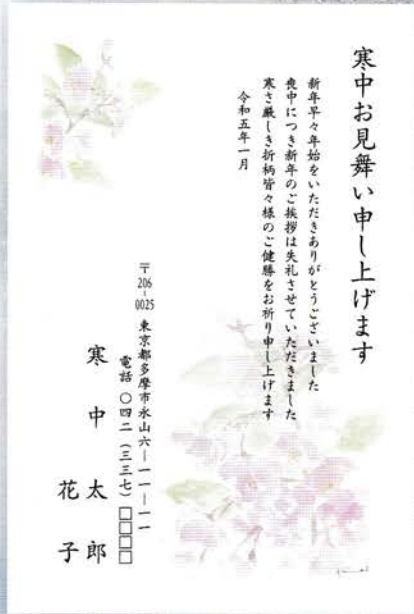 寒中お見舞い申し上げます
新年早々年始をいただきありがとうございました
喪中につき新年のご挨拶は失礼させていただきました
寒さ厳しき折柄皆々様のご健勝をお祈り申し上げます
令和五年一月
〒206-0025 東京都多摩市永山六―一一―一一
電話 〇四二(三三七)□□□□
寒中太郎
花子